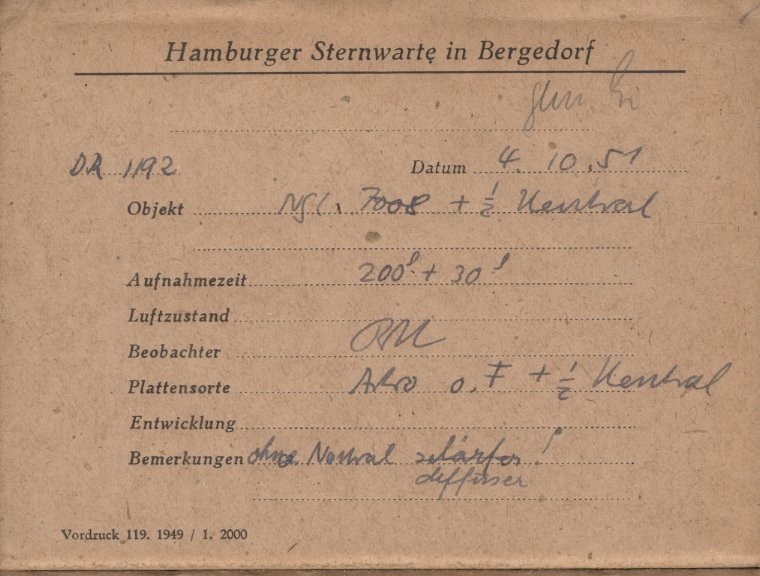 Hamburger Sternwarte in Bergedorf
DR 1192 Datum 4. 10. 51
Objekt NGC. 7008 + 1/2 Neutral
Aufnahmezeit 200s + 30s
Luftzustand
Beobachter
Plattensorte Astro o. F + 1/2 Neutral
Entwicklung
Bemerkungen ohne Neutral schärfer!
diffuser
Vordruck 119. 1949 / 1. 2000